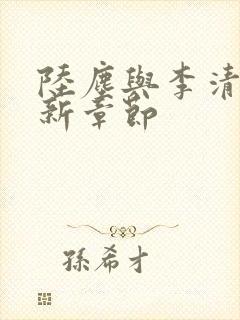 陸塵與李清
新章節
孫希才